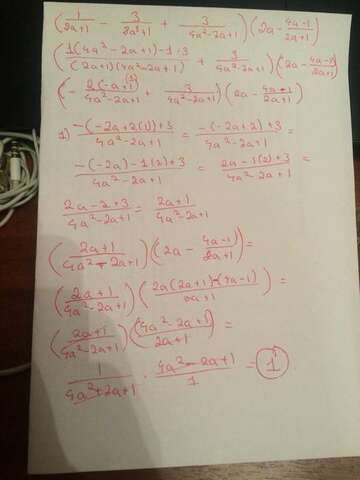 (1/(2a+1) - 3/(8a³+1) + 3/(4a²-2a+1))(2a - (4a-1)/(2a+1))
((1(4a²-2a+1)-1·3)/((2a+1)(4a²-2a+1)) + 3/(4a²-2a+1))(2a - (4a-1)/(2a+1))
(- 2(-a+1)/(4a²-2a+1) + 3/(4a²-2a+1))(2a - (4a-1)/(2a+1))
1) (-(-2a+2(1)+3)/(4a²-2a+1) = (-(-2a+2)+3)/(4a²-2a+1) =
(-(-2a)-1(2)+3)/(4a²-2a+1) = (2a-1(2)+3)/(4a²-2a+1) =
(2a-2+3)/(4a²-2a+1) = (2a+1)/(4a²-2a+1)
((2a+1)/(4a²-2a+1))(2a - (4a-1)/(2a+1)) =
((2a+1)/(4a²-2a+1))((2a(2a+1)-(4a-1))/(2a+1)) =
((2a+1)/(4a²-2a+1))((4a²-2a+1)/(2a+1)) =
1/(4a²-2a+1) · (4a²-2a+1)/1 = 1